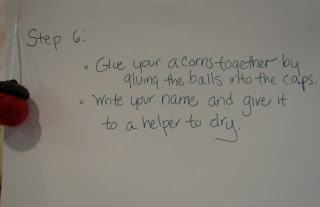 Step 6:
• Glue your acorns together by
gluing the balls into the caps.
• Write your name and give it
to a helper to dry.